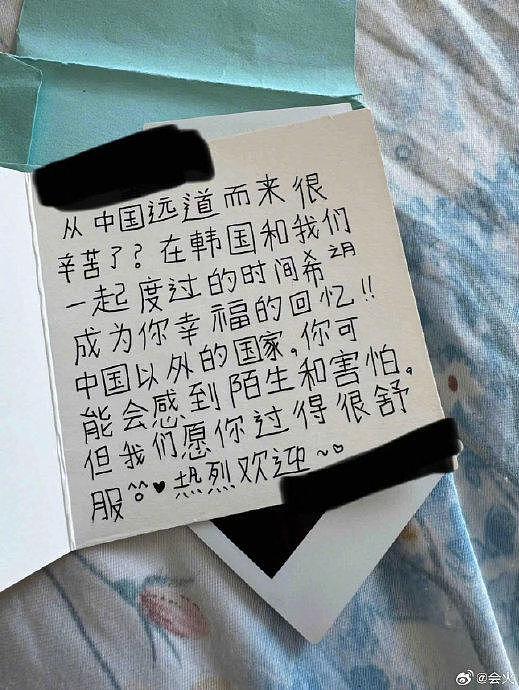 从中国远道而来很
辛苦了？在韩国和我们
一起度过的时间希望
成为你幸福的回忆!!
中国以外的国家，你可
能会感到陌生和害怕。
但我们愿你过得很舒
服ㅎㅎ♥热烈欢迎~♡
@会火